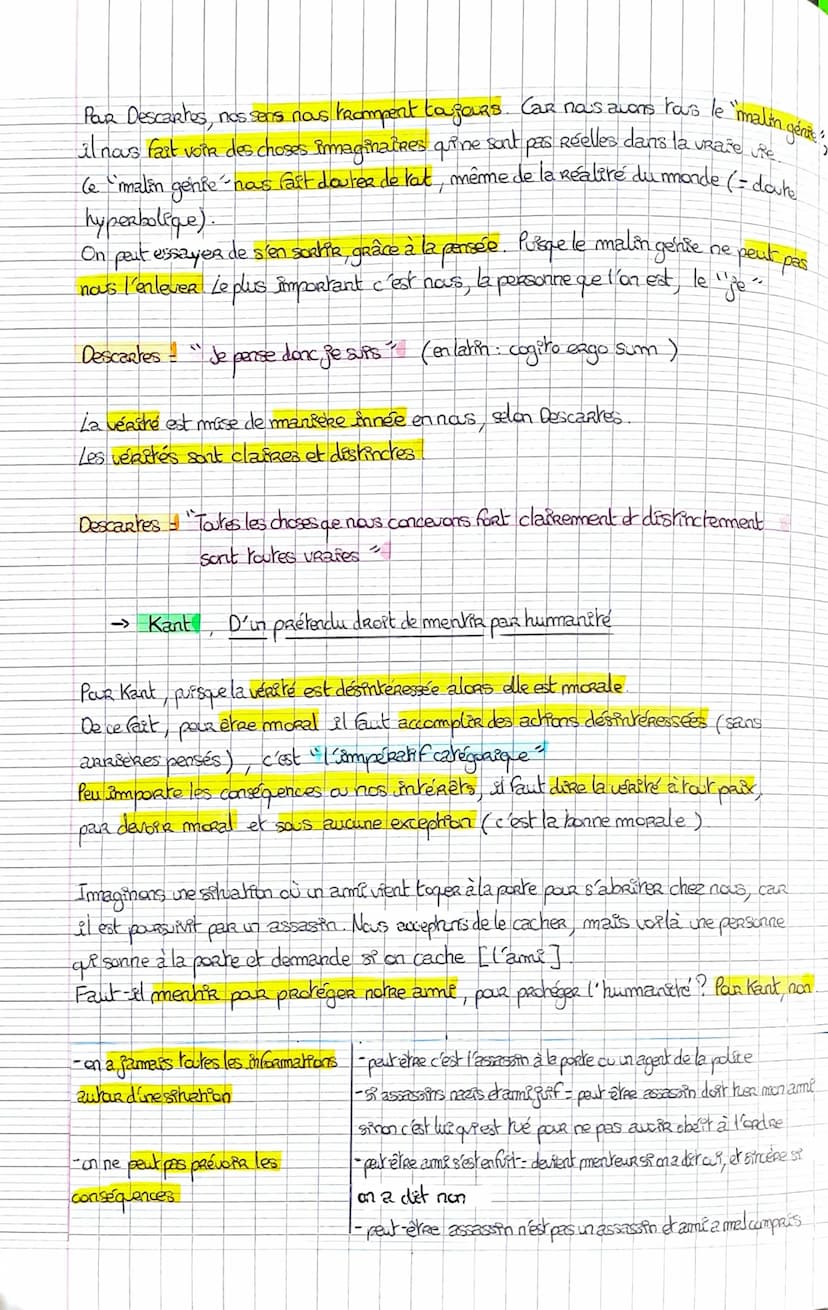 Pour Descartes, nos sens nous trompent toujours. Car nous avons tous le "malin génie",
il nous fait voir des choses immaginaires qui ne sont pas réelles dans la vraie vie.
Ce "malin génie" nous fait douter de tout, même de la réalité du monde (= doute
hyperbolique).
On peut essayer de s'en sortir, grâce à la pensée. Puisque le malin génie ne peut pas
nous l'enlever. Le plus important c'est nous, la personne que l'on est, le "je"
Descartes : "Je pense donc je suis" (en latin : cogito ergo sum)
La vérité est mise de manière innée en nous, selon Descartes.
Les vérités sont claires et distinctes.
Descartes : "Toutes les choses que nous concevons fort clairement et distinctement
sont toutes vraies"
→ Kant, D'un prétendu droit de mentir par humanité
Pour Kant, puisque la vérité est désintéressée alors elle est morale.
De ce fait, pour être moral il faut accomplir des actions désintéressées (sans
arrières pensés), c'est "l'impératif catégorique"
Peu importe les conséquences ou nos intérêts, il faut dire la vérité à tout prix,
par devoir moral et sous aucune exception (c'est la bonne morale)
Imaginons une situation où un ami vient toquer à la porte pour s'abriter chez nous, car
il est poursuivit par un assasin. Nous acceptons de le cacher, mais voilà une personne
qui sonne à la porte et demande si on cache [l'ami].
Faut-il mentir pour protéger notre ami, pour protéger l'humanité ? Pour Kant, non
- on a jamais toutes les informations
autour d'une situation
- peut être c'est l'assassin à la porte ou un agent de la police
- si assassins nazis et ami juif = peut être assassin doit tuer mon ami
sinon c'est lui qui est tué pour ne pas avoir obéit à l'ordre
- on ne peut pas prévoir les
conséquences
- peut être ami s'est enfuit = devient menteur si on a dit oui, et sincère si
on a dit non
- peut-être assassin n'est pas un assassin et ami a mal compris